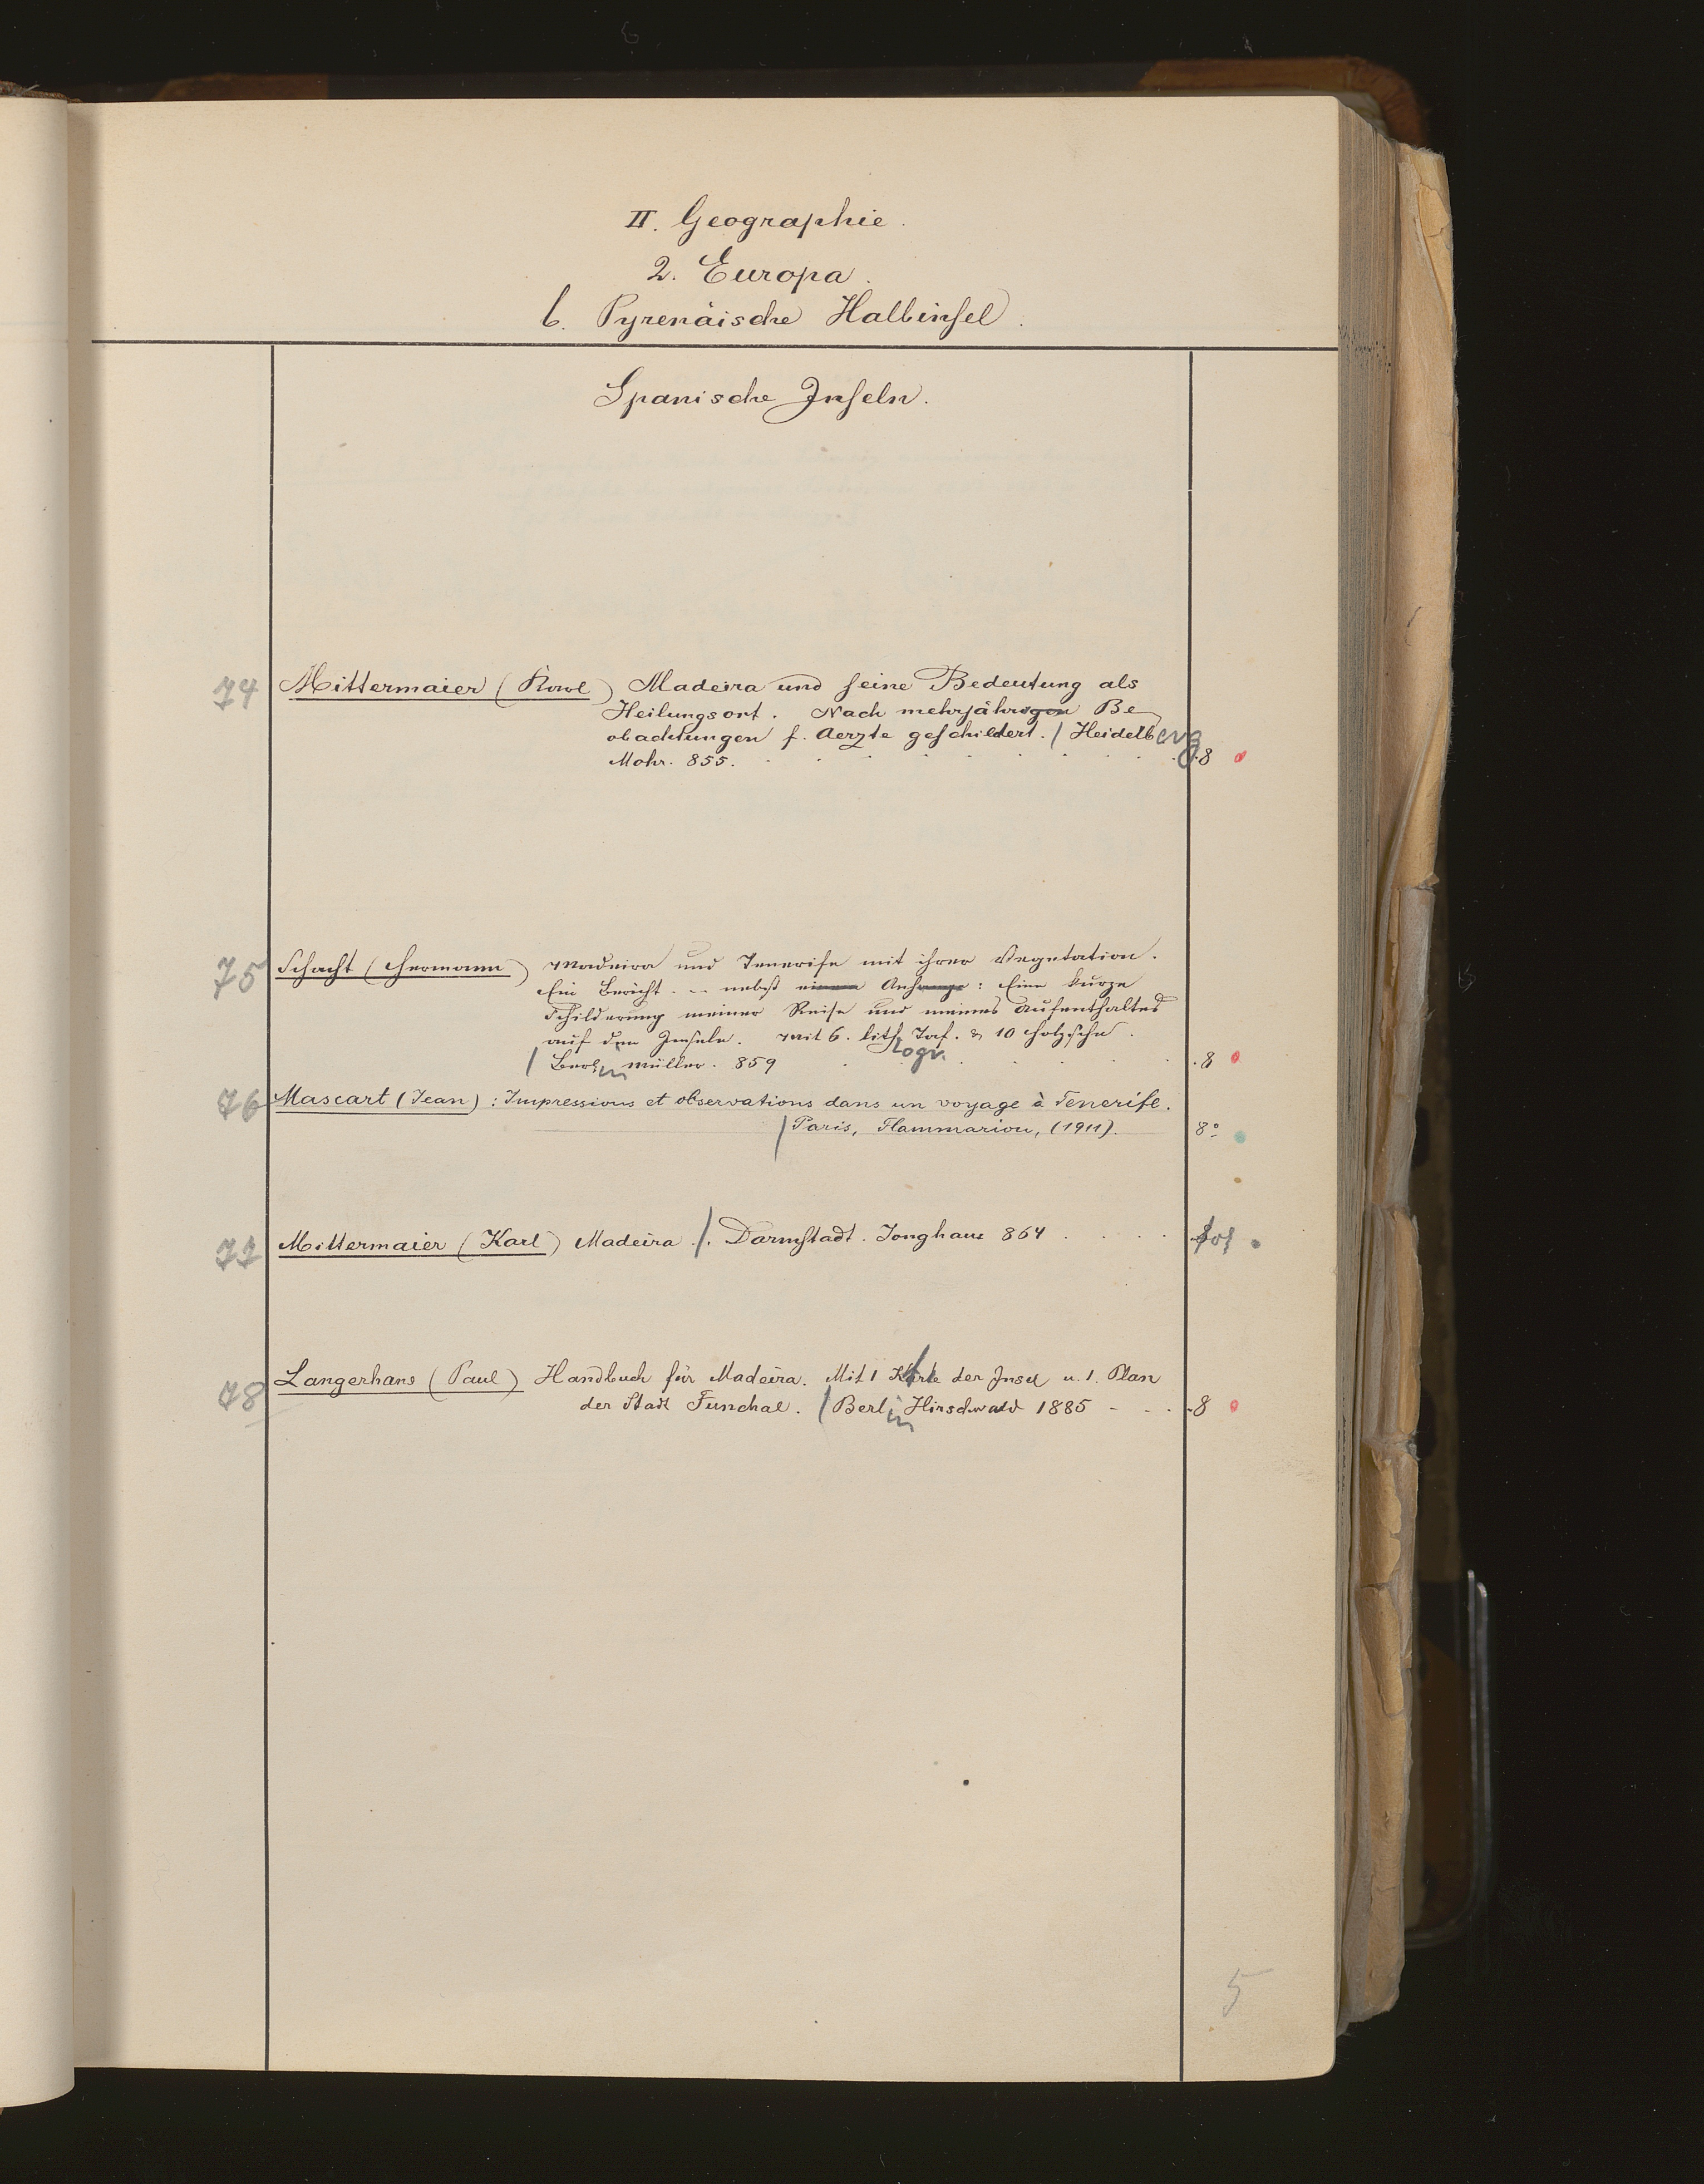 II. Geographie.
2. Europa.
b. Pyrenäische Halbinsel.
Spanische Inseln.
74 Mittermaier (Karl) Madeira und seine Bedeutung als
Heilungsort. Nach mehrjährigen Be
obachtungen f. Aerzte geschildert. / Heidelberg
Mohr. 855. . . . . . . . . 8
75 Schacht (Hermann) Madeira und Tenerife mit ihrer Vegetation.
Ein Bericht - - nebst einem Anhange: Eine kurze
Schilderung meiner Reise und meines Aufenthaltes
auf den Inseln. Mit 6. lithogr. Taf. & 10 Holzschn.
/ Berlin Müller. 859 . . . . . 8
76 Mascart (Jean): Impressions et observations dans un voyage à Tenerife.
/ Paris, Flammarion, (1911). 8°
77 Mittermaier (Karl) Madeira /. Darmstadt. Jonghaus 864 . . . . fol
78 Langerhans (Paul) Handbuch für Madeira. Mit 1 Karte der Insel u. 1. Plan
der Stadt Funchal. / Berlin Hirschwald 1885 - - . . 8
5